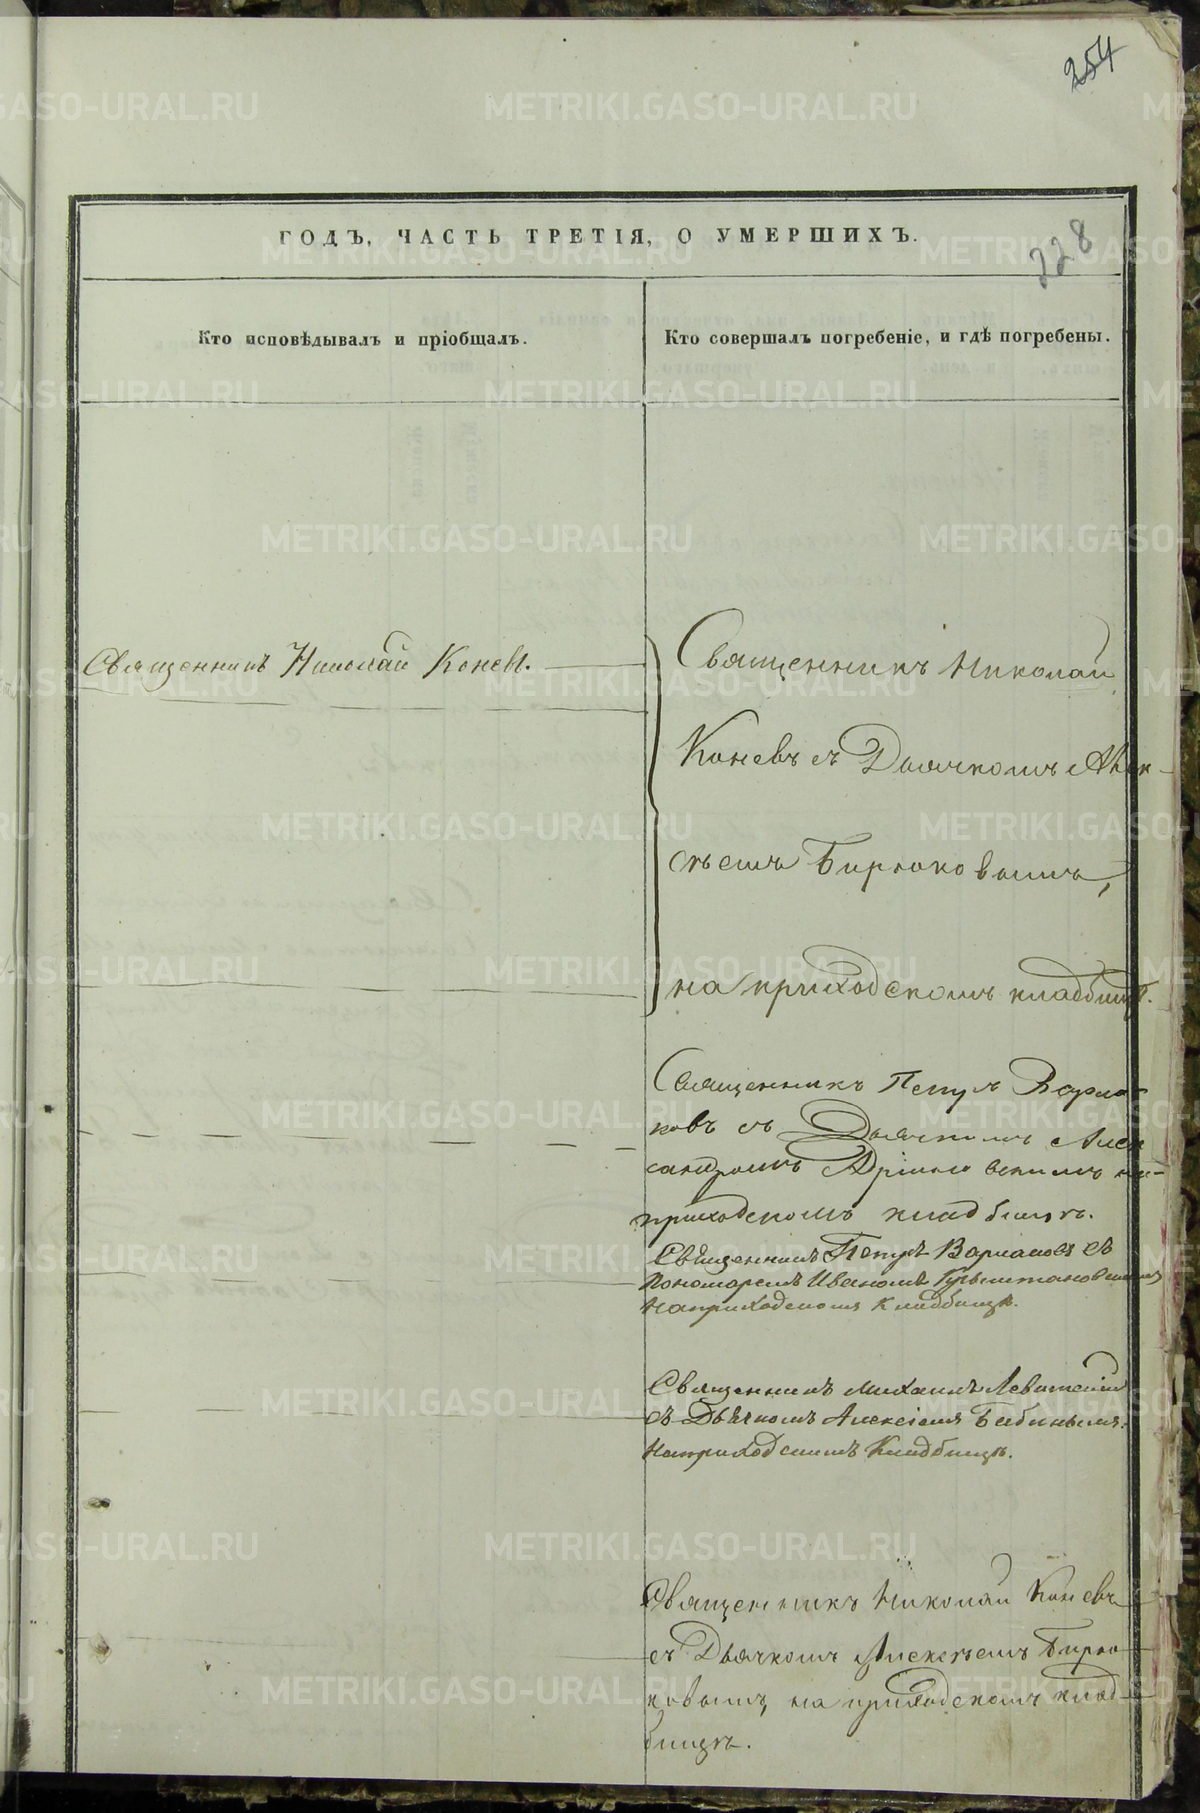 254
ГОДЪ, ЧАСТЬ ТРЕТІЯ, О УМЕРШИХЪ.
228
Кто исповѣдывалъ и пріобщалъ.
Кто совершалъ погребеніе, и гдѣ погребены.
Священникъ Николай Коневъ.
Священникъ Николай
Коневъ съ Дьячкомъ Алек-
сѣемъ Бирюковымъ,
на приходскомъ кладбищѣ.
Священникъ Петръ Варла-
ковъ съ Дьячкомъ Алек
сандромъ на
приходскомъ кладбищѣ.
Священникъ Петръ Варлаковъ съ
Пономаремъ Иваномъ
На приходскомъ Кладбищѣ.
Священникъ Михаилъ Левитскій
съ Дьячкомъ Алексіемъ Бабинымъ.
На приходскомъ Кладбищѣ.
Священникъ Николай Коневъ
съ Дьячкомъ Алексѣемъ Бирю
ковымъ, на приходскомъ клад-
бищѣ.
METRIKI.GASO-URAL.RU